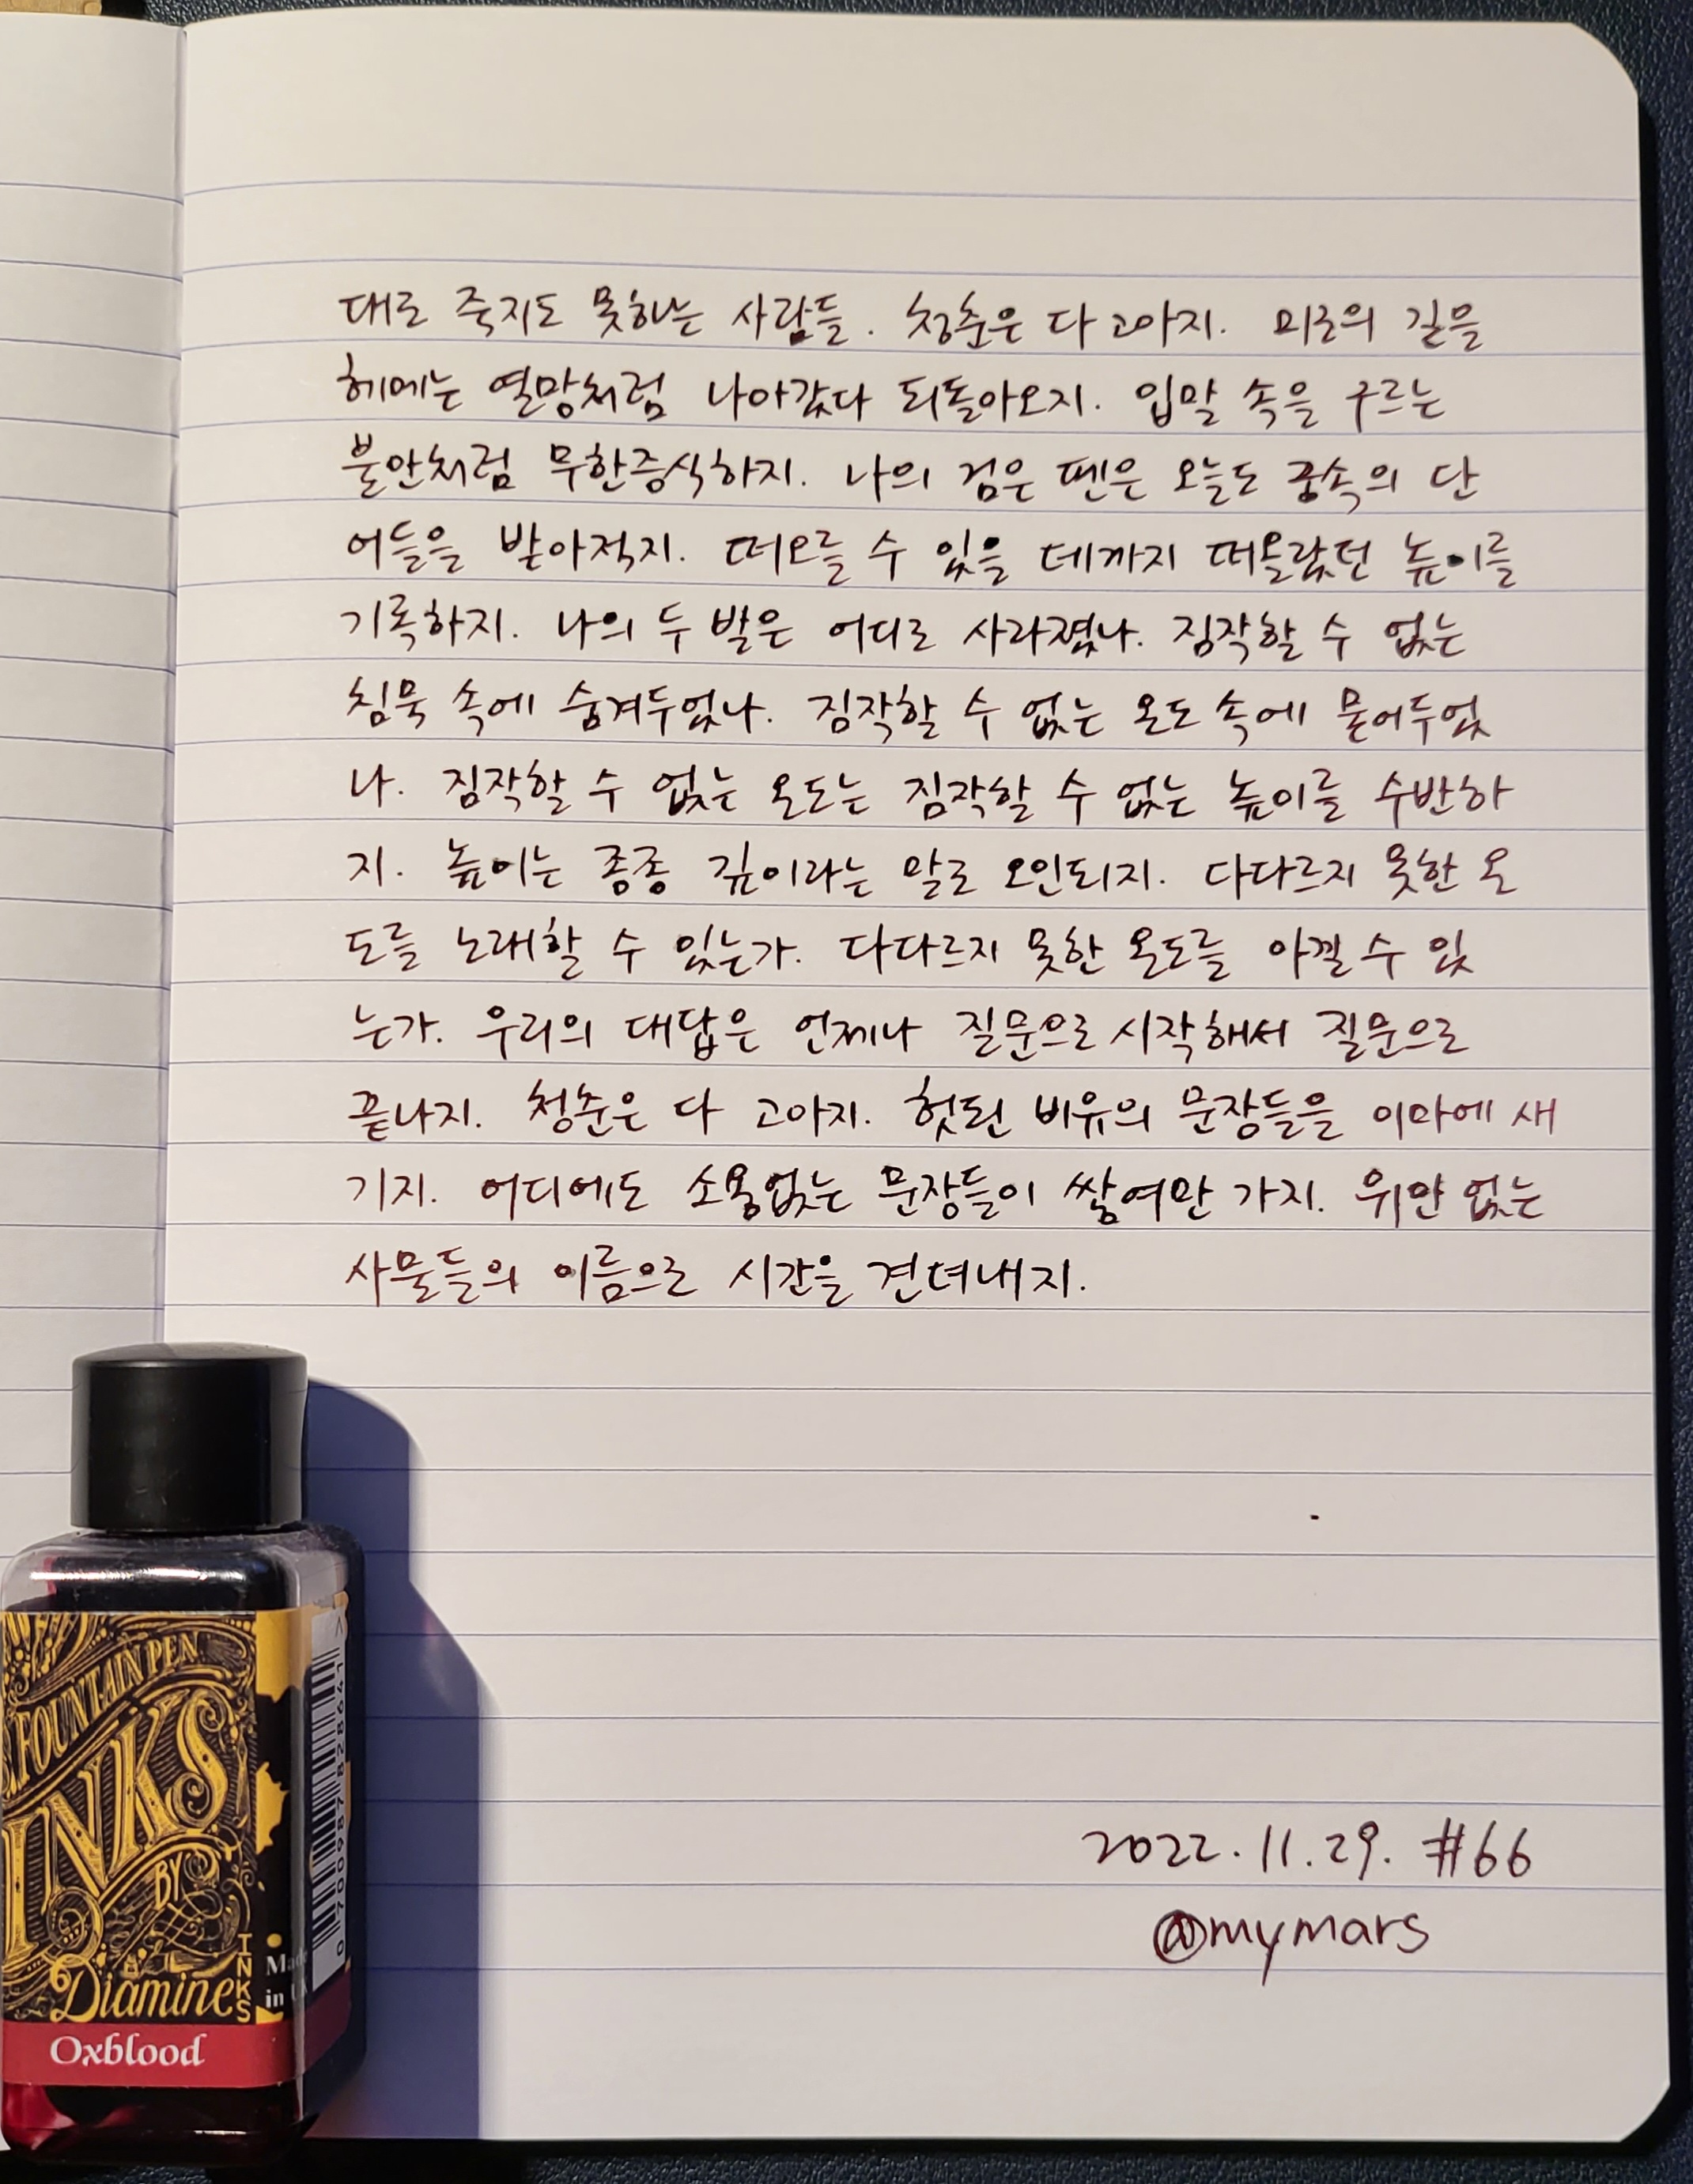 대로 죽지도 못하는 사람들. 청춘은 다 고아지. 미로의 길을
헤메는 열망처럼 나아갔다 되돌아오지. 입말 속을 구르는
불안처럼 무한증식하지. 나의 검은 펜은 오늘도 공속의 단
어들을 받아적지. 떠오를 수 있을 데까지 떠올랐던 높이를
기록하지. 나의 두 발은 어디로 사라졌나. 짐작할 수 없는
침묵 속에 숨겨두었나. 짐작할 수 없는 온도 속에 묻어두었
나. 짐작할 수 없는 온도는 짐작할 수 없는 높이를 수반하
지. 높이는 종종 깊이라는 말로 오인되지. 다다르지 못한 온
도를 노래할 수 있는가. 다다르지 못한 온도를 아낄 수 있
는가. 우리의 대답은 언제나 질문으로 시작해서 질문으로
끝나지. 청춘은 다 고아지. 헛된 비유의 문장들을 이마에 새
기지. 어디에도 소용없는 문장들이 쌓여만 가지. 위안 없는
사물들의 이름으로 시간을 견뎌내지.
2022.11.29. #66
@mymars
FOUNTAIN PEN
INKS
BY
Diamine
INKS
Made
in UK
Oxblood